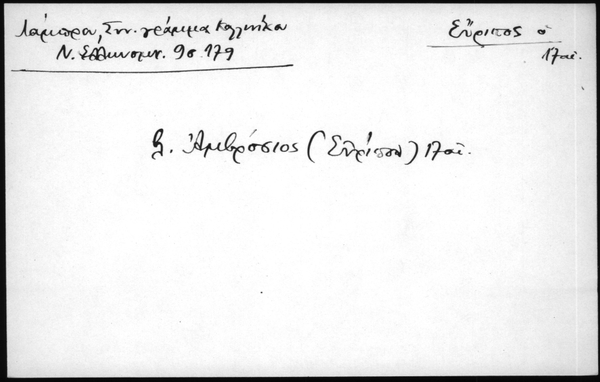 Λάμπρου, Συν. γράμμα Καλλινίκου
Ν. Ἑλληνομν. 9σ 179
Εὔριπος ὁ
17 αἰ.
β. Ἀμβρόσιος (Εὐρίπου) 17 αἰ.